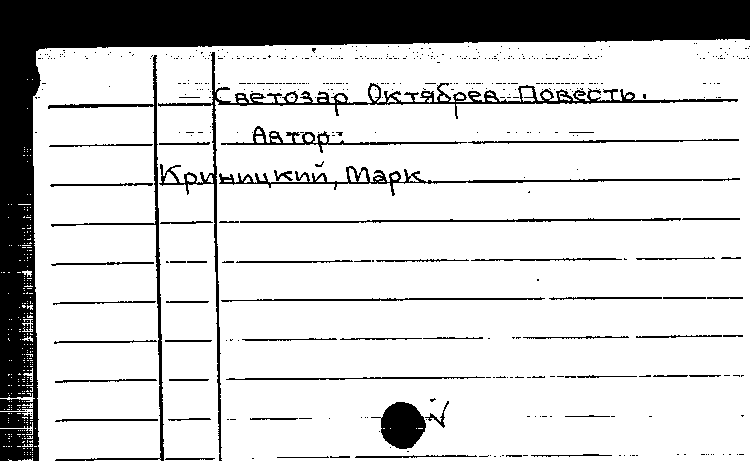 Светозар Октябрев. Повесть.
Автор:
Криницкий, Марк.